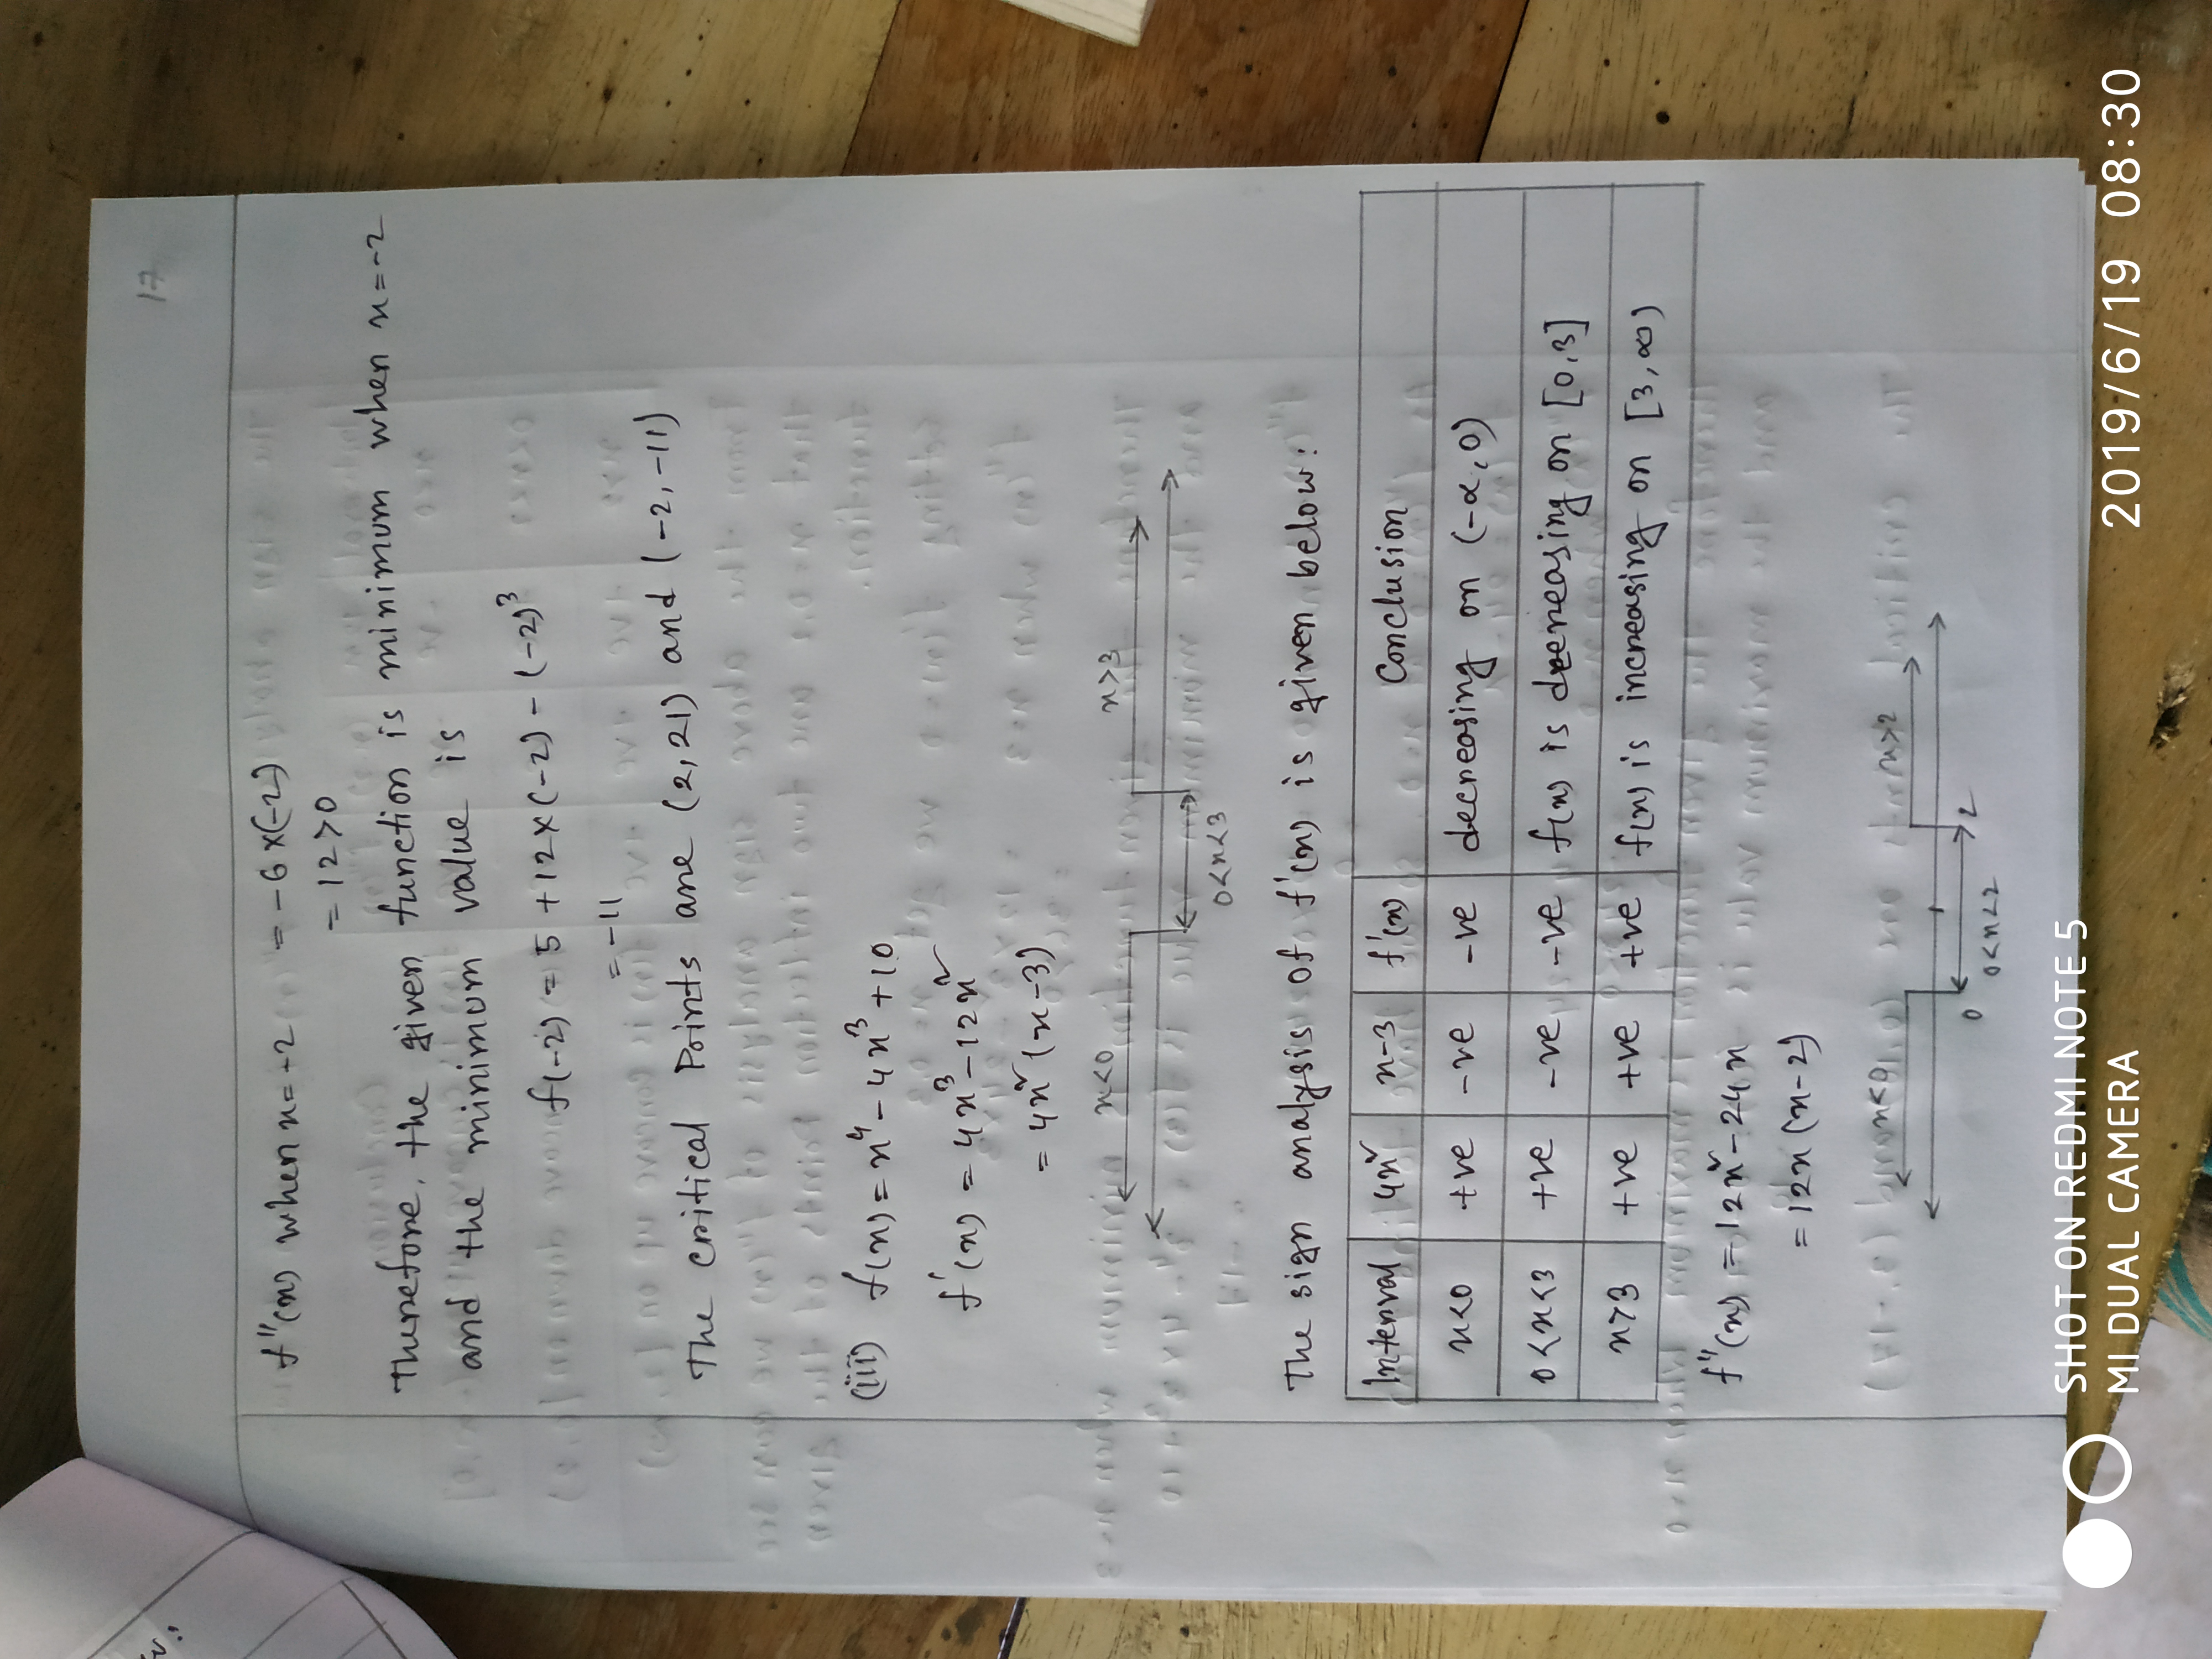 17
f''(x) when x = -2 = -6×(-2)
= 12>0
Therefore, the given function is minimum when x = -2
and the minimum value is
f(-2) = 5 + 12×(-2) - (-2)³
= -11
The critical Points are (2,21) and (-2,-11)
(iii) f(x) = x⁴ - 4x³ + 10
f'(x) = 4x³ - 12x²
= 4x² (x-3)
x<0 x>3
0<x<3
The sign analysis of f'(x) is given below:
Interval 4x² x-3 f'(x) Conclusion
x<0 +ve -ve -ve decreasing on (-∝,0)
0<x<3 +ve -ve -ve f(x) is decreasing on [0,3]
x>3 +ve +ve +ve f(x) is increasing on [3,∞)
f''(x) = 12x² - 24x
= 12x (x-2)
x<0 x>2
0 2
0<x<2
SHOT ON REDMI NOTE 5
MI DUAL CAMERA
2019/6/19 08:30